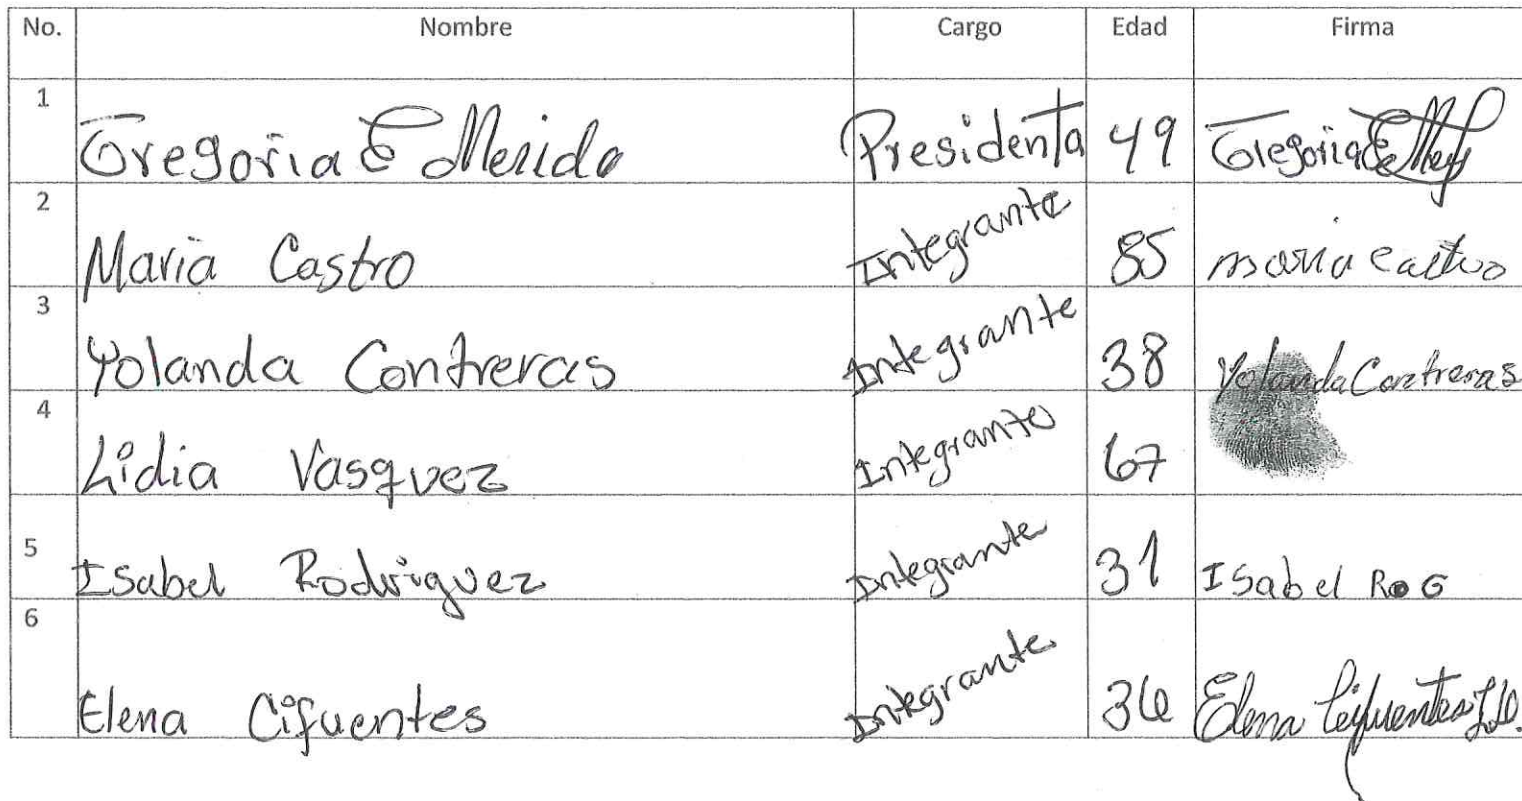 No. Nombre Cargo Edad Firma
1 Gregoria E Merida Presidenta 49 Gregoria E
2 Maria Castro Integrante 85 maria castro
3 Yolanda Contreras Integrante 38 Yolanda Contreras
4 Lidia Vasquez Integrante 67
5 Isabel Rodriguez Integrante 31 Isabel Ro G
6 Elena Cifuentes Integrante 36 Elena Cifuentes